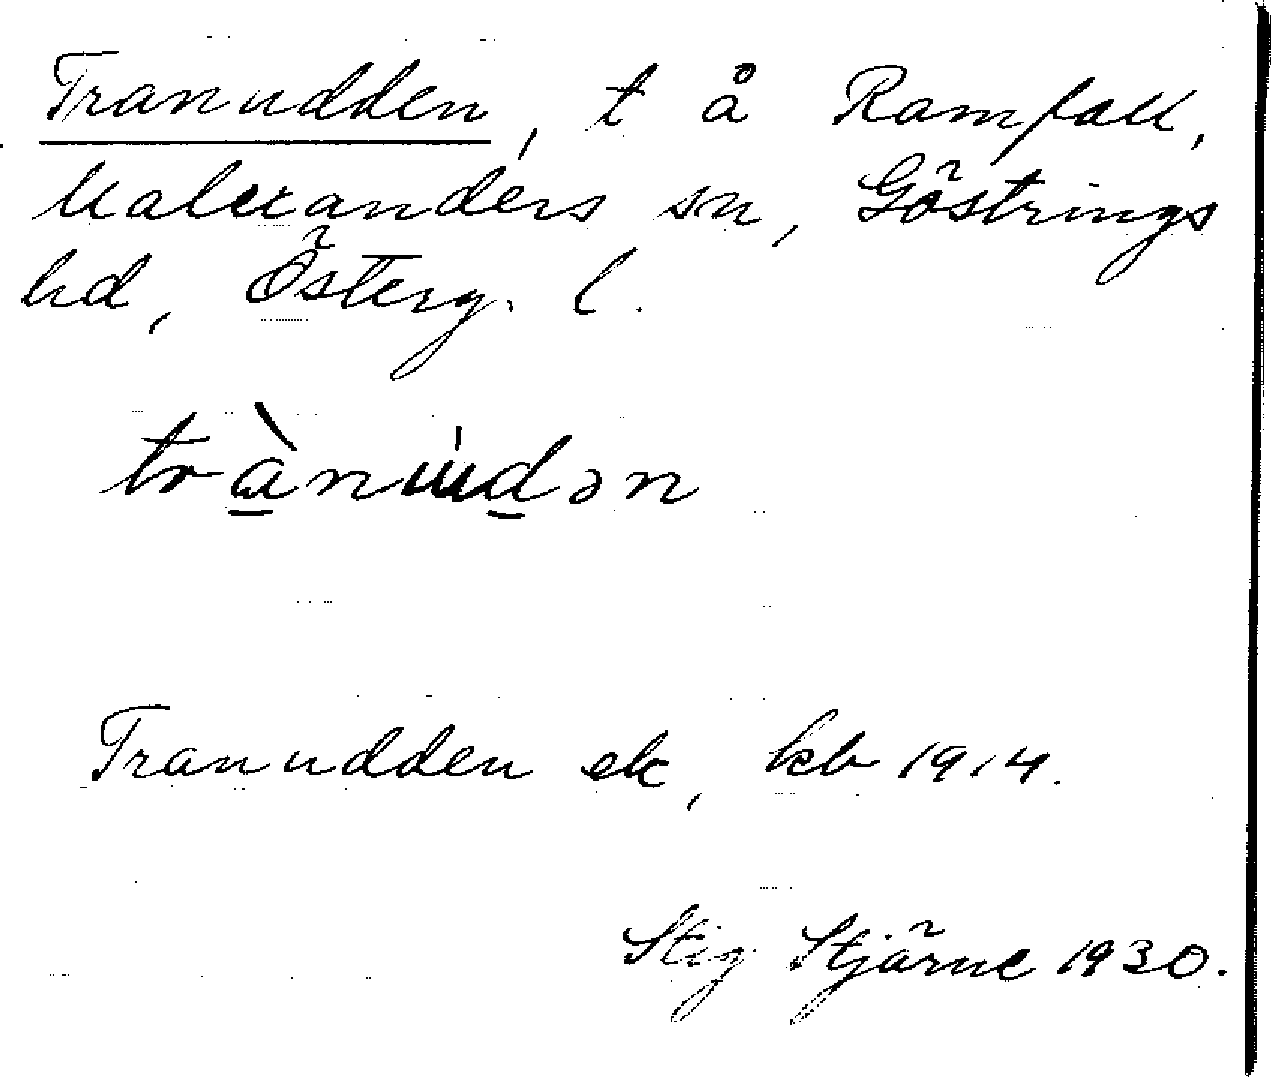 Tranudden, t å Ramfall,
Malexanders sn, Göstrings
hd, Österg. l.
trànu̍dən
Tranudden ek, kb 1914.
Stig Stjärne 1930.